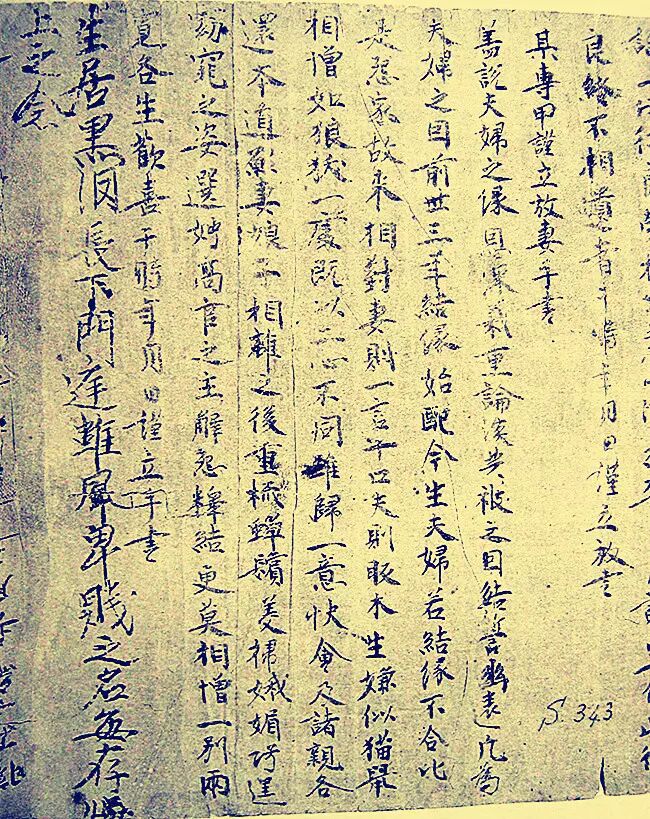 良終不相遺者于時年月日謹立放書
某專甲謹立放妻手書
蓋說夫婦之緣恩深義重論談共被之因結誓幽遠凡為
夫婦之因前世三年結緣始配今生夫婦若結緣不合比
是怨家故来相對妻則一言十口夫則眅木生嫌似猫鼠
相憎如狼犺一處既以二心不同難歸一意快會及諸親各
還本道願妻娘子相離之後重梳蟬鬢美掃娥媚巧逞
窈窕之姿選娉高官之主解怨釋結更莫相憎一別兩
寬各生歡喜于時年月日謹立手書
生居黑 長下門庭雖 卑賤之名每存
上之念
S. 343